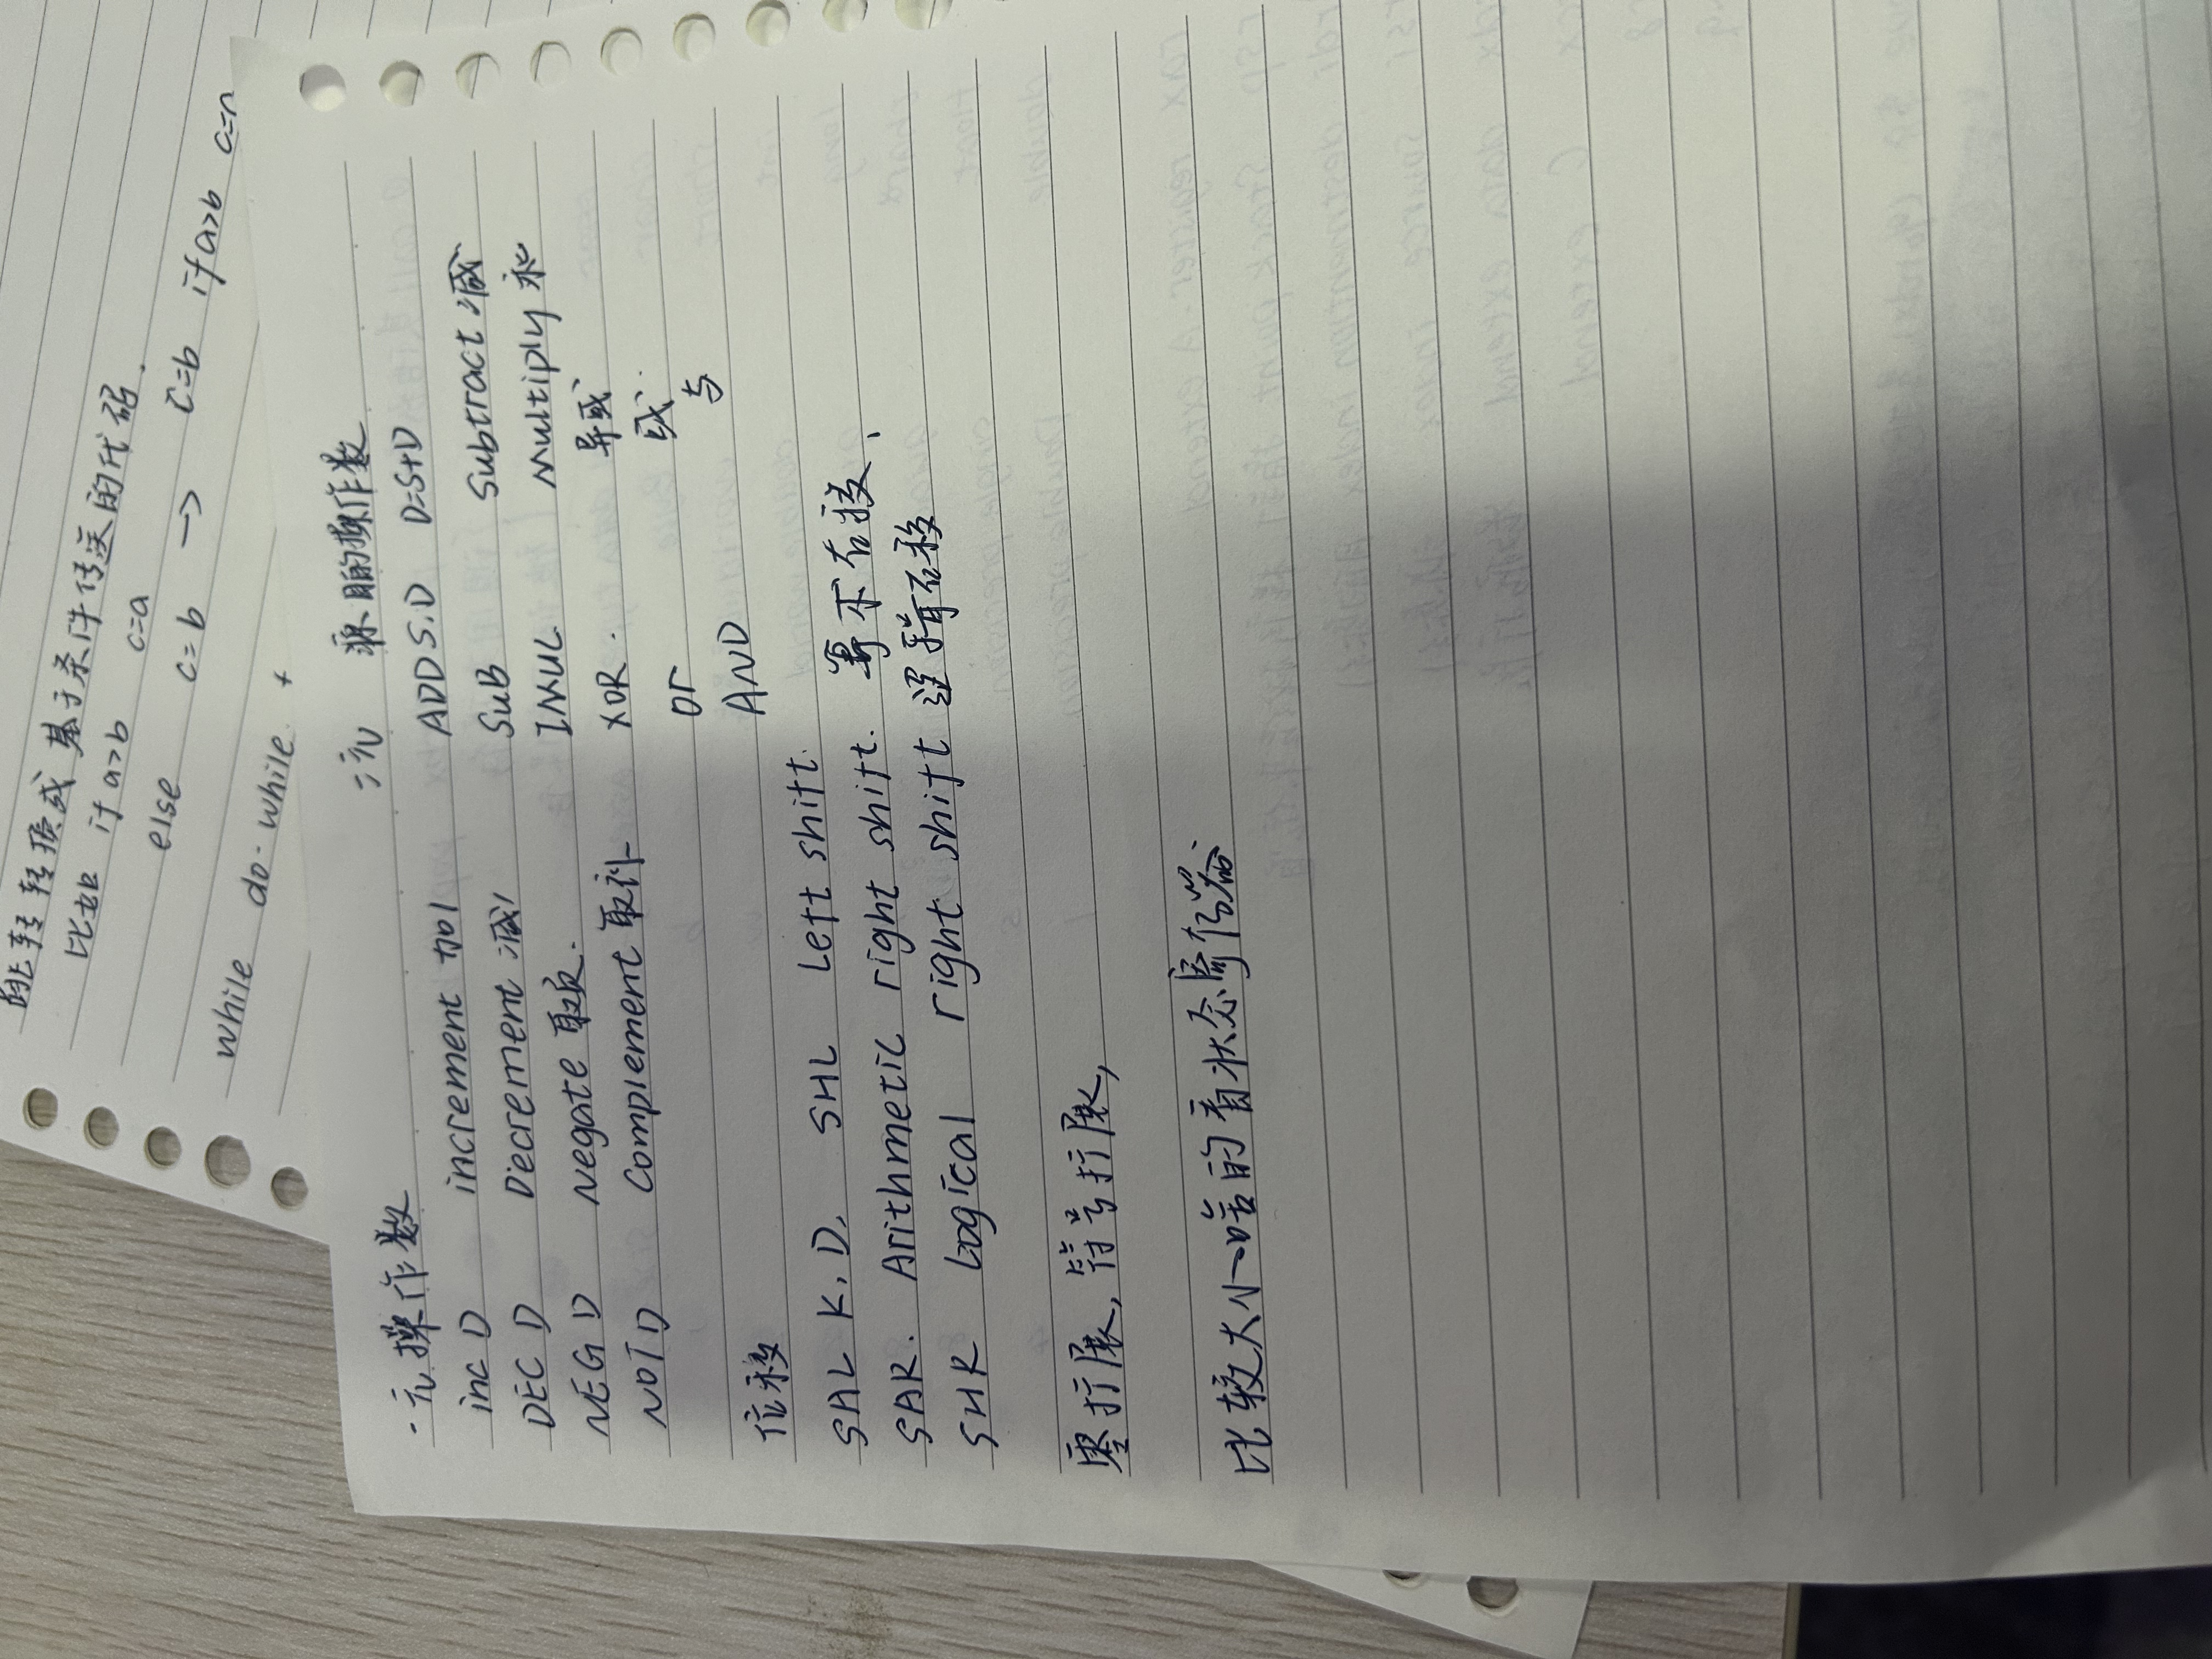 跳转转换成 基于条件传送的代码.
比如 if a>b c=a
else c=b → c=b if a>b c=a
while do-while. +
一元操作数
inc D increment 加1
DEC D Decrement 减1
NEG D Negate 取负.
NOT D Complement 取补
二元 源目的操作数
ADD S,D D=S+D
SUB Subtract 减
IMUL Multiply 乘
XOR. 异或
or 或
AND 与
位移
SAL K,D, SHL Left shift.
SAR. Arithmetic right shift. 算术右移,
SHR Logical right shift 逻辑右移
零扩展, 符号扩展,
比较大小啥的看状态寄存器